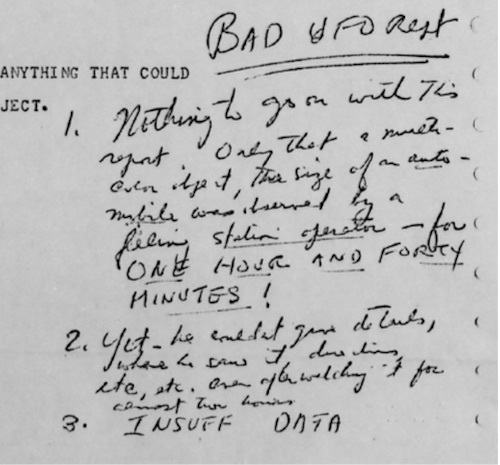 BAD UFO Rept
ANYTHING THAT COULD
JECT.
1. Nothing to go on with this
report. Only that a multi-
color object, the size of an auto-
mobile was observed by a
filling station operator – for
ONE HOUR AND FORTY
MINUTES!
2. Yet – he couldnt give details,
where he saw it, directions,
etc, etc. even after watching it for
almost two hours
3. INSUFF DATA